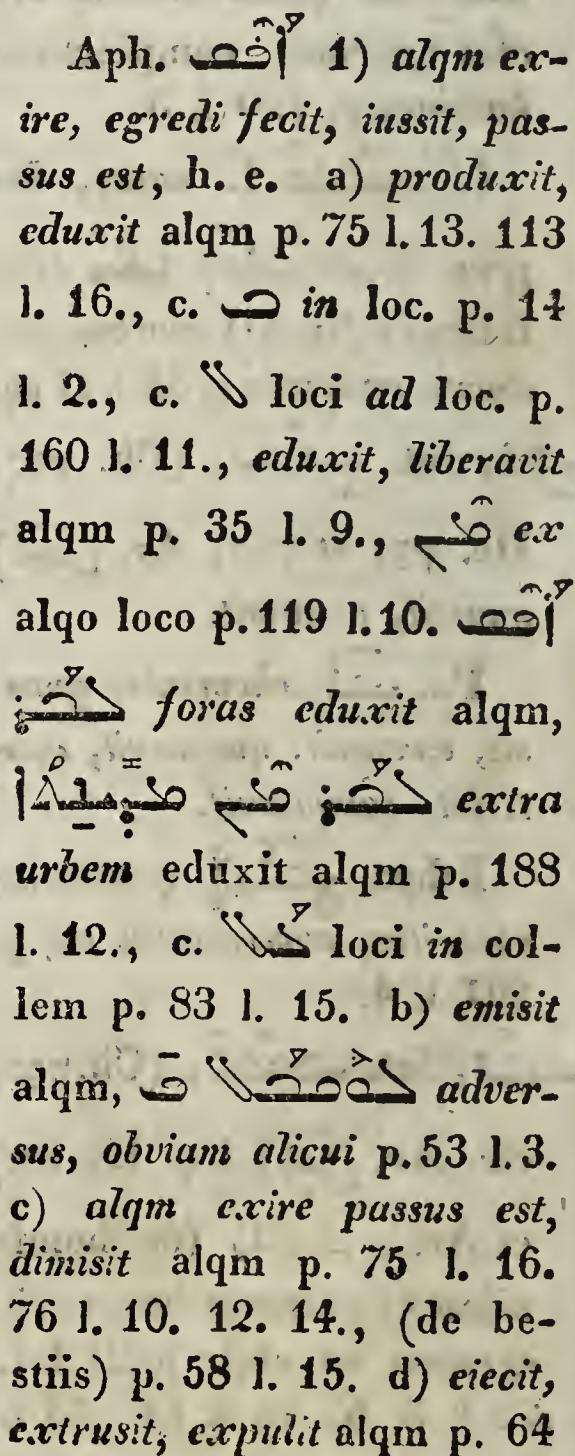 Aph. ܐܰܦܶܩ 1) alqm ex-
ire, egredi fecit, iussit, pas-
sus est, h. e. a) produxit,
eduxit alqm p. 75 l. 13. 113
l. 16., c. ܒ in loc. p. 14
l. 2., c. ܠ loci ad loc. p.
160 l. 11., eduxit, liberavit
alqm p. 35 l. 9., ܡܶܢ ex
alqo loco p. 119 l. 10. ܐܰܦܶܩ
ܠܒܰܪ foras eduxit alqm,
ܠܒܰܪ ܡܶܢ ܡܕܝܼܢ̱ܬܳܐ extra
urbem eduxit alqm p. 188
l. 12., c. ܥܰܠ loci in col-
lem p. 83 l. 15. b) emisit
alqm, ܠܽܘܩܒܰܠ ܦ̄ adver-
sus, obviam alicui p. 53 l. 3.
c) alqm exire passus est,
dimisit alqm p. 75 l. 16.
76 l. 10. 12. 14., (de be-
stiis) p. 58 l. 15. d) eiecit,
extrusit, expulit alqm p. 64